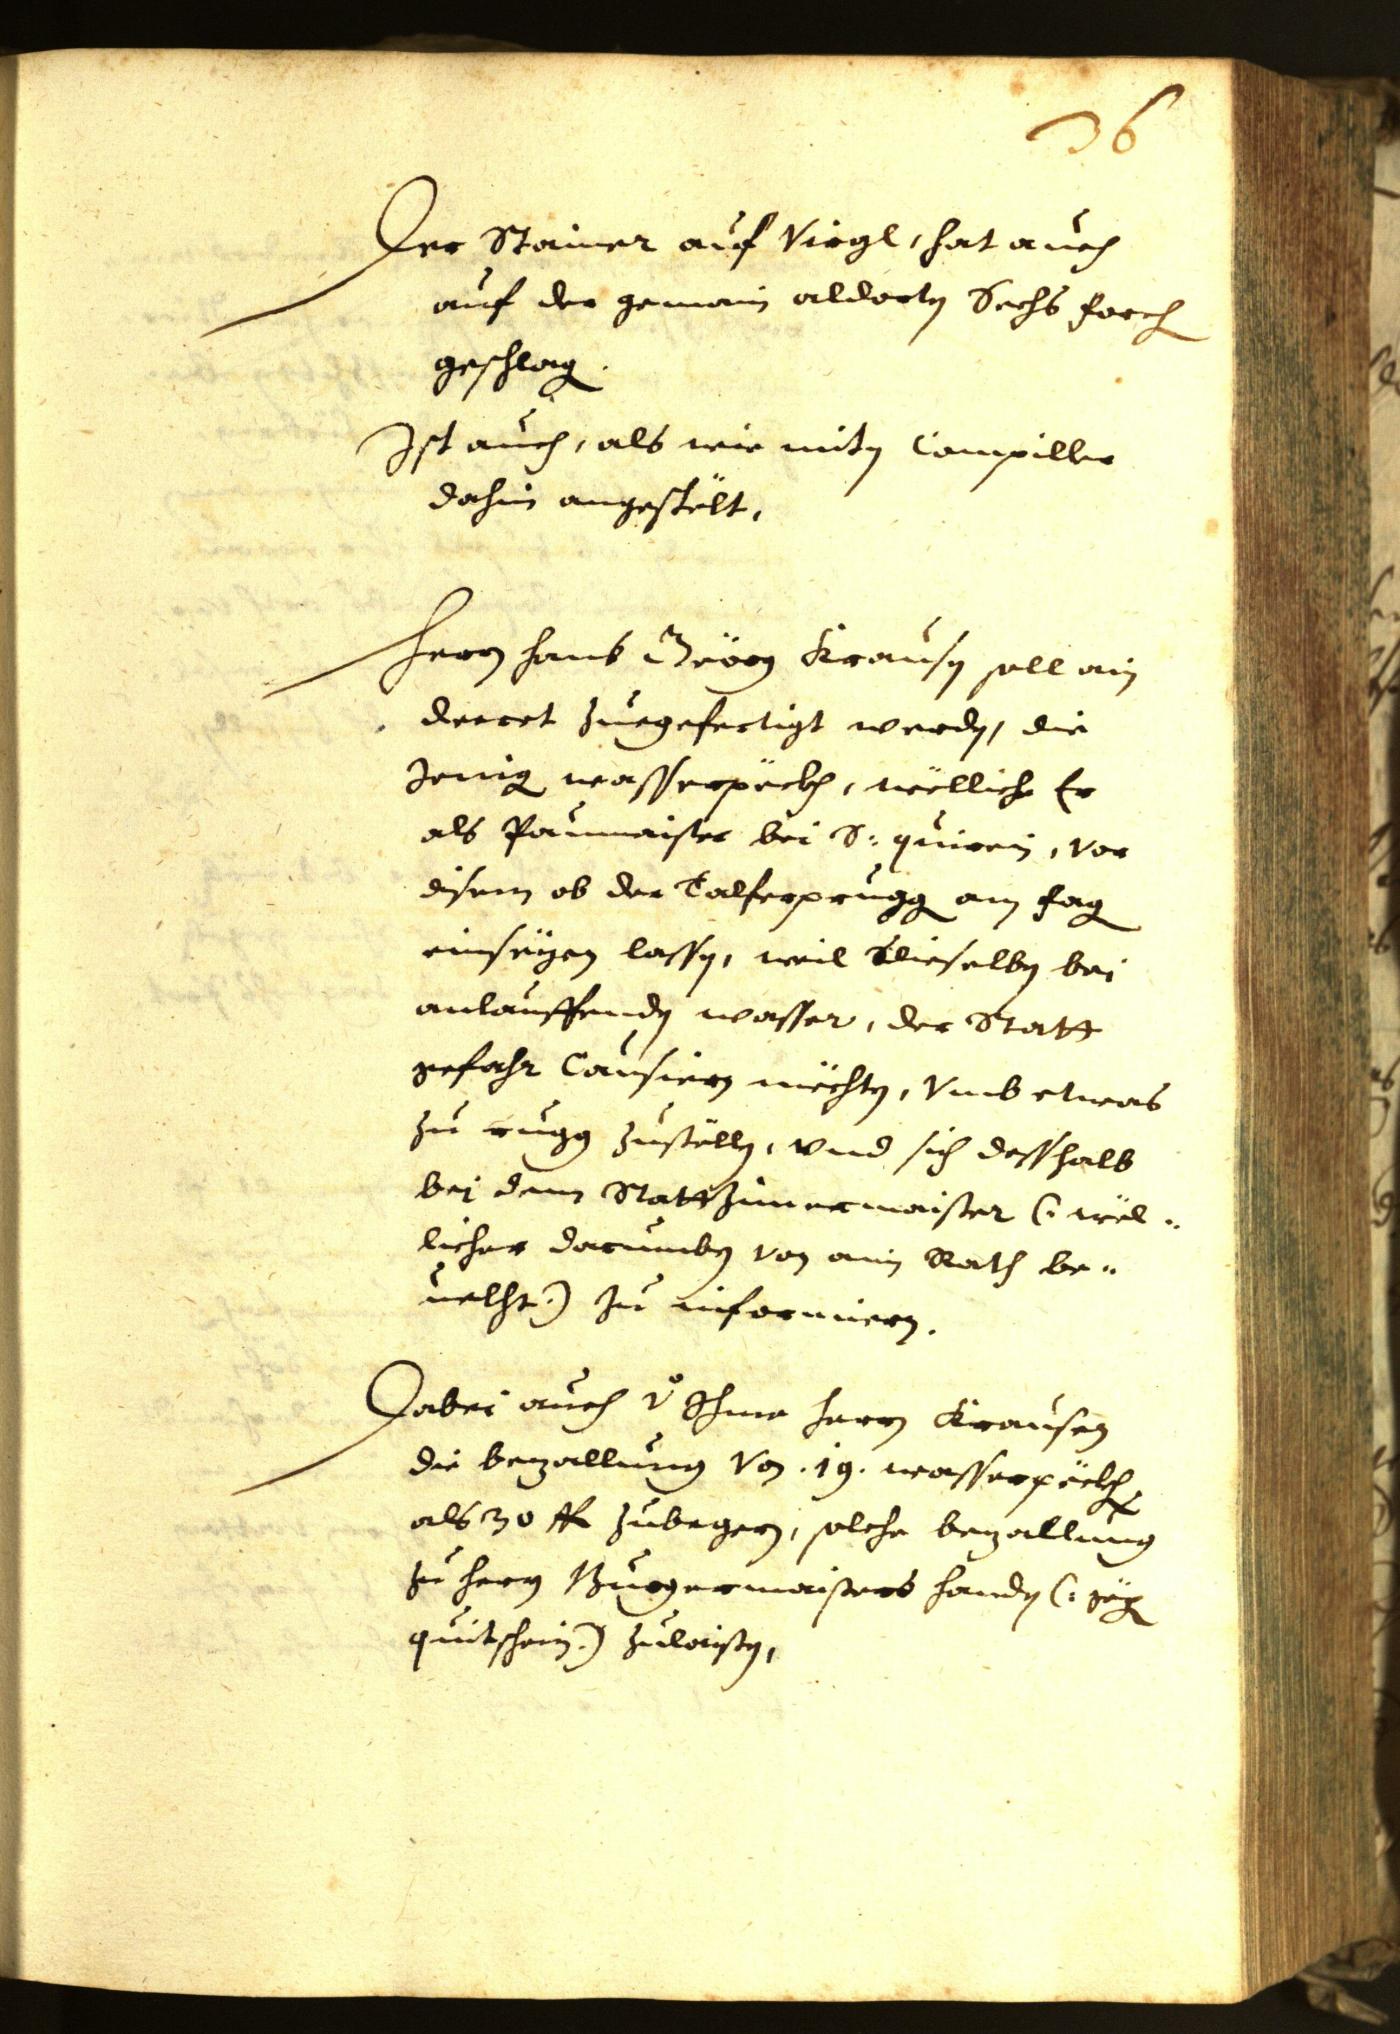 36
Der Stainer auf Virgl, hat auch
auf der gemain aldorten Sechs forch
geschlag.
Ist auch, als wie miten Campiller
dahin angestëlt,
Herrn Hanns Geörg Krausen soll ain
decret zuegefertigt werden, die
Jenig wasserpëckh, wëlliche Er
als Paumaister bei S: quirein, vor
disem ob der Talferprugg am fag
einsëzen lassen, weil dieselben bei
anlauffenden wasser, der Statt
gefahr Causiern mëchten, vmb etwas
zu rugg zustëllen, vnd sich desshalb
bei dem Statt Zimermaister (: wël¬
licher darumben von ain Rath be¬
uelht:) zu informiern.
Dabei auch v° Ihme herrn Krausen
die bezallung von .19. wasserpëckh
als 30 fl zubegern, solche bezallung
zu herrn Burgermaisters handen (: gëg
quitschein:) zulaisten,